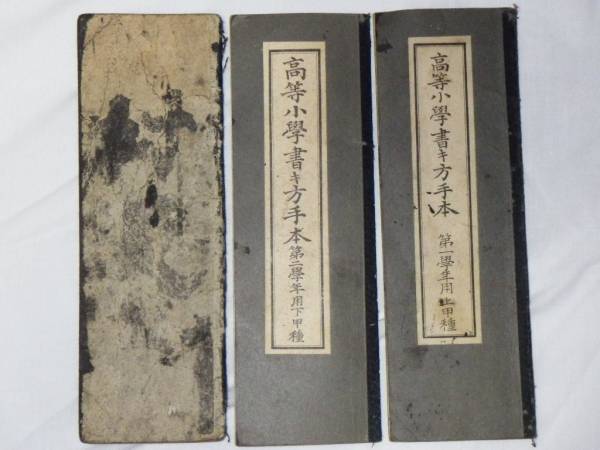 高等小學書キ方手本 第一學年用 上甲種
高等小學書キ方手本 第二學年用 下甲種